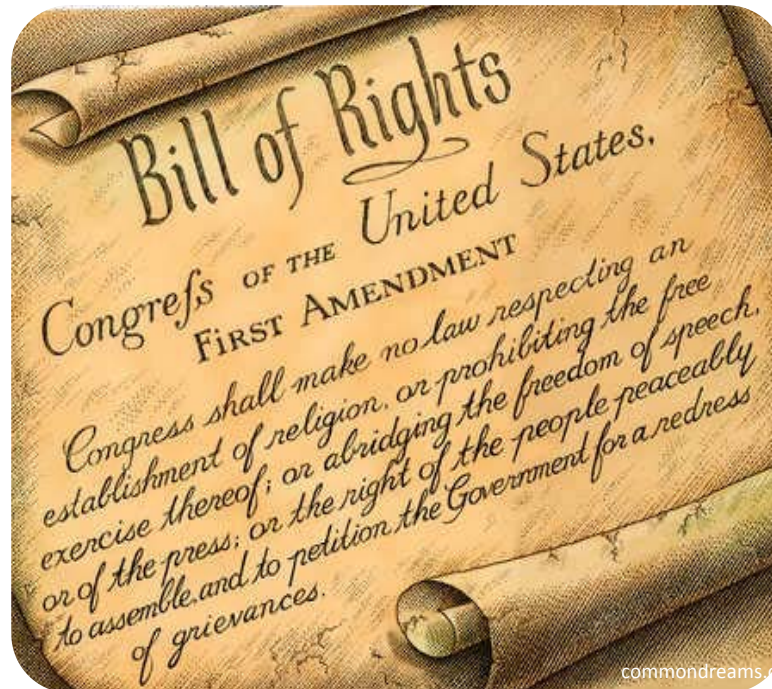 Bill of Rights
Congreſs OF THE United States,
FIRST AMENDMENT
Congress shall make no law respecting an
establishment of religion, or prohibiting the free
exercise thereof; or abridging the freedom of speech,
or of the press; or the right of the people peaceably
to assemble, and to petition the Government for a redress
of grievances.
commondreams.o